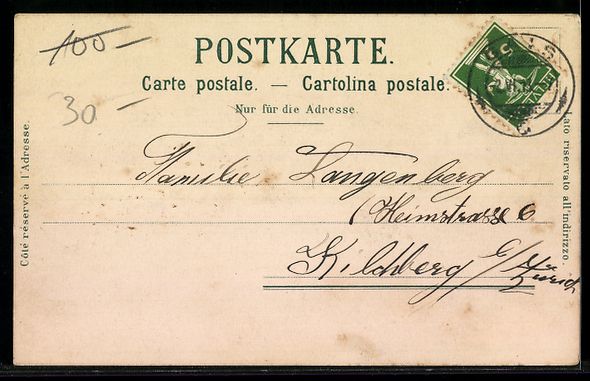 100-
30-
POSTKARTE.
Carte postale. — Cartolina postale.
Nur für die Adresse.
Côté réservé à l'Adresse.
Lato riservato all'indirizzo.
Familie Langenberg
(Heimstrasse 6
Kilchberg b/
Zürich
5
HELVETIA